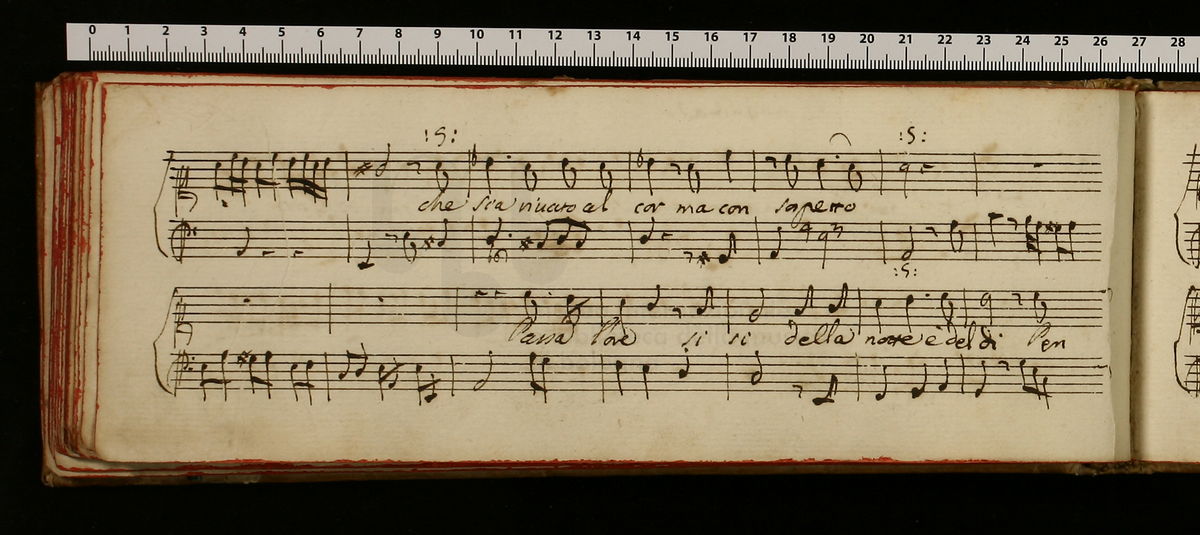 0 1 2 3 4 5 6 7 8 9 10 11 12 13 14 15 16 17 18 19 20 21 22 23 24 25 26 27 28
:S: :S:
che sia al cor ma con
:S:
l'ore si si della notte è del di Pen